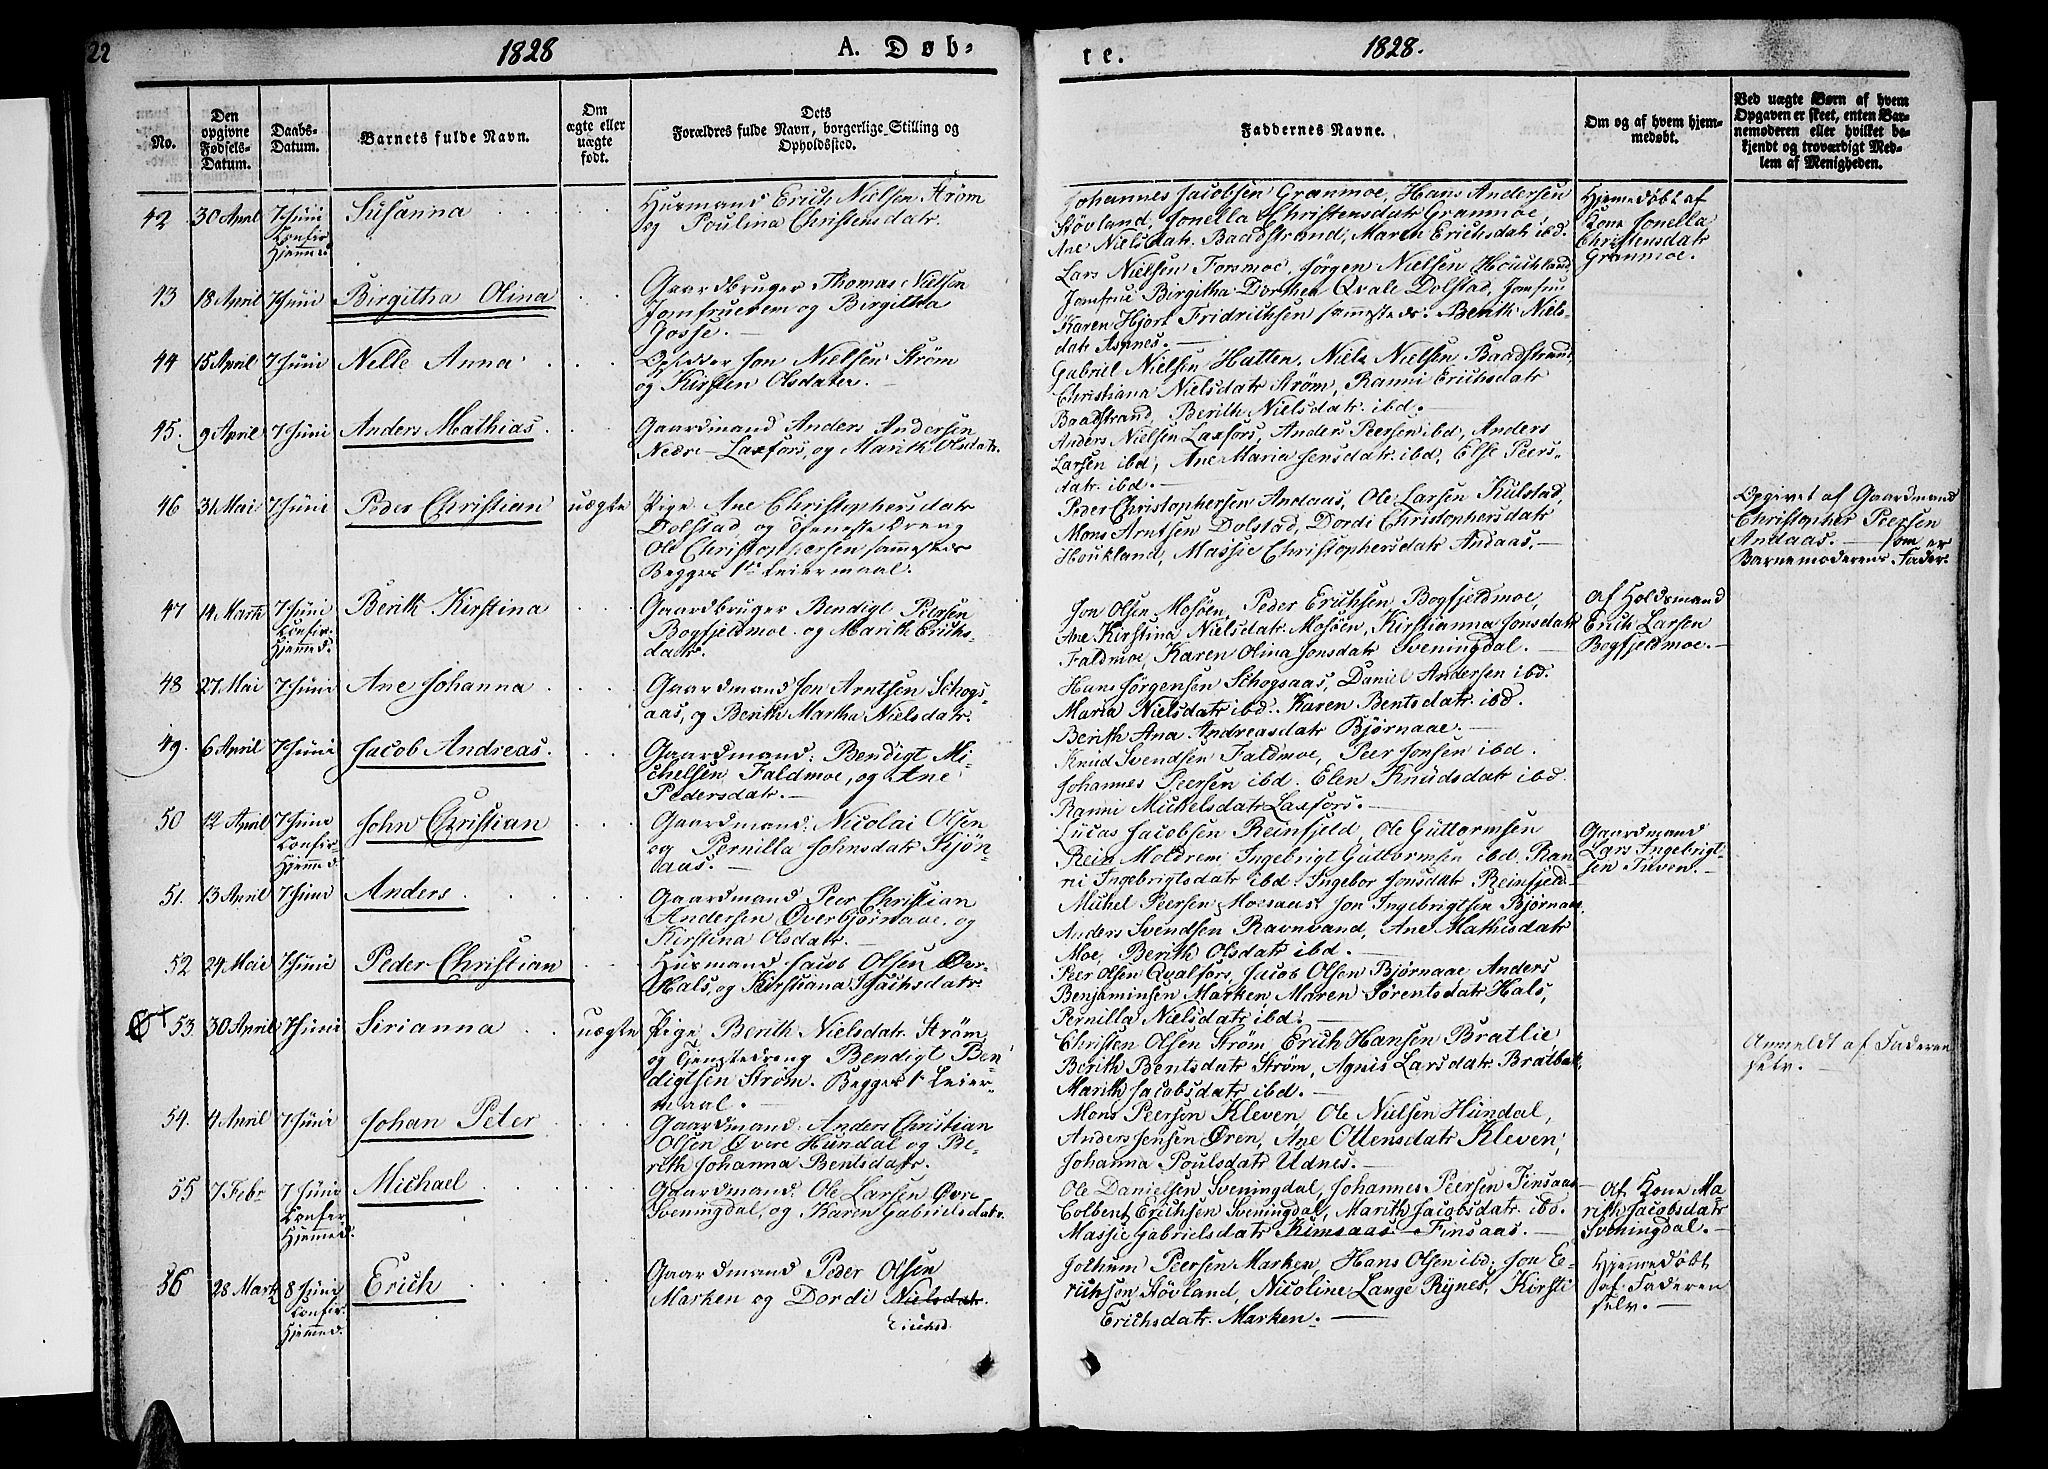 22
1828
A. Døb-
te.
1828.
No.
Den opgivne Fødsels-Datum.
Daabs-Datum.
Barnets fulde Navn.
Om ægte eller uægte født.
Dets Forældres fulde Navn, borgerlige Stilling og Opholdssted.
Faddernes Navne.
Om og af hvem hjemmedøbt.
Ved uægte Børn af hvem Opgaven er skeet, enten Barnemoderen eller hvilket bekjendt og troværdigt Medlem af Menigheden.
42 30 April 7 Juni Confir. Hjemmed. Susanna
Huusmand Erich Nielsen Strøm
og Poulina Christensdatr.
Johannes Jacobsen Granmoe, Hans Andersen
Støvland, Jonella Christensdatr Granmoe,
Ane Nielsdatr. Baadstrand, Maren Erichsdatr ibd.
Hjemedøbt af
Kone Jonella
Christensdatr
Granmoe.
43 18 April 7 Juni Birgitha Olina
Gaardbruger Thomas Nielsen
Jomfruerem og Birgitha
Gosse.
Lars Nielsen Forsmoe, Jørgen Nielsen Houkland,
Jomfrue Birgitha Dorthea Qvale Dolstad, Jomfrue
Karen Hjort Fridrichsen sammesteds. Berith Niels-
datr Aspnes.
44 15 April 7 Juni Nelle Anna
Opsidder Jon Nielsen Strøm
og Kirsten Olsdater.
Gabriel Nielsen Hatten, Niels Nielsen Baadstrand,
Christiana Nielsdatr Strøm, Ranni Erichsdatr
Baadstrand, Berith Nielsdatr. ibd.
45. 9 April 7 Juni Anders Mathias.
Gaardmand Anders Andersen
Nedre-Laxfors, og Marith Olsdatr.
Anders Nielsen Laxfors, Anders Peersen ibd, Anders
Larsen ibd, Ane Maria Jensdatr. ibd, Else Peers-
datr. ibd.
46 31 Mai 7 Juni Peder Christian uægte
Pige Ane Christophersdatr
Dolstad og Tjeneste Dreng
Ole Christophersen sammesteds
Begges 1ste Leiermaal.
Peder Christophersen Andaas, Ole Larsen Kulstad,
Mons Arntsen Dolstad, Dordi Christophersdatr
Houkland, Massie Christophersdatr Andaas.
Opgivet af Gaardmand
Christopher Peersen
Andaas. som er
Barnemoderens Fader.
47 14 Marti 7 Juni Confir. Hjemmed. Berith Kirstina
Gaardbruger Bendigt Peersen
Bogfjeldmoe og Marith Erichs-
datr.
Jon Olsen Mosøen, Peder Erichsen Bogfjeldmoe,
Ane Kirstina Nielsdatr. Mosøen, Kirstianna Jonsdatr
Faldmoe, Karen Olina Jonsdatr Sveningdal.
Af Holdsmand
Erich Larsen
Bogfjeldmoe.
48 27 Mai 7 Juni Ane Johanna
Gaardmand Jon Arntsen Schogs-
aas, og Berith Martha Nielsdatr.
Hans Jørgensen Schogsaas, Daniel Andersen ibd.
Maria Nielsdatr ibd. Karen Bentsdatr. ibd.
Berith Ana Andreasdatr Bjørnaae.
49. 6 April 7 Juni Jacob Andreas.
Gaardmand: Bendigt Mi-
chelsen Faldmoe, og Ane
Pedersdatr.
Knud Svendsen Faldmoe, Peer Jonsen ibd.
Johannes Peersen ibd. Elen Knudsdatr ibd.
Ranni Mickelsdatr Laxfors.
50 12 April 7 Juni Confir- Hjemmed. John Christian
Gaardmand: Nicolai Olsen
og Pernilla Johnsdatr Kjøn-
aas.
Lucas Jacobsen Reinfjeld, Ole Guttormsen
Rein Moldrem, Ingebrigt Guttormsen ibd. Ran-
ni Ingebrigtsdatr ibd. Ingebor Jonsdatr Reinfjeld.
Gaardmand
Lars Ingebrigt-
sen Tuven.
51. 13 April 7 Juni Anders
Gaardmand Peer Christian
Andersen Øver Bjørnaae, og
Kirstina Olsdatr.
Michel Peersen Moesaas, Jon Ingebrigtsen Bjørnaae,
Anders Svendsen Ravnvand, Ane Mathisdatr
Moe, Berith Olsdatr ibd.
52 24 Mai 7 Juni Peder Christian
Huusmand Jacob Olsen Øvr
Hals, og Kirstiana Isachsdatr.
Peer Olsen Qvalfors, Jacob Olsen Bjørnaae, Anders
Benjaminsen Marken, Maren Sørensdatr Hals,
Pernilla Nielsdatr ibd.
53 30 April 7 Juni Sirianna uægte
Pige Berith Nielsdatr. Strøm,
og Tjenstedreng Bendigt Ben-
digtsen Strøm. Begges 1ste Leier-
maal.
Christen Olsen Strøm, Erich Hansen Bratlie,
Berith Bentsdatr Strøm, Agnis Larsdatr. Bratbak,
Marith Jacobsdatr ibd.
Anmeldt af Faderen
selv.
54. 4 April 7 Juni Johan Peter
Gaardmand: Anders Christian
Olsen Øvere Hundal og Be-
rith Johanna Bentsdatr.
Mons Peersen Kleven, Ole Nielsen Hundal,
Anders Jensen Øren, Ane Ottensdatr Kleven,
Johanna Poulsdatr Udnes.
55 7 Febr 7 Juni Confir Hjemmed. Michael
Gaardmand. Ole Larsen Øvre
Sveningdal, og Karen Gabrielsdatr.
Ole Danielsen Sveningdal, Johannes Peersen Finsaas
Colbent Erichsen Sveningdal, Marith Jacobsdatr. ibd.
Massie Gabrielsdatr Kimsaas Finsaas.
Af Kone Ma-
rith Jacobsdatr
Sveningdal.
56 28 Marti 8 Juni Confir. Hjemmed. Erich
Gaardmand Peder Olsen
Marken og Dordi Nielsdatr.
Erichsd.
Jochum Peersen Marken, Hans Olsen ibd, Jon E-
richsen Støvland, Nicoline Lange Rynes, Kirsti
Erichsdatr. Marken.
Hjemmedøbt
af Faderen
selv.